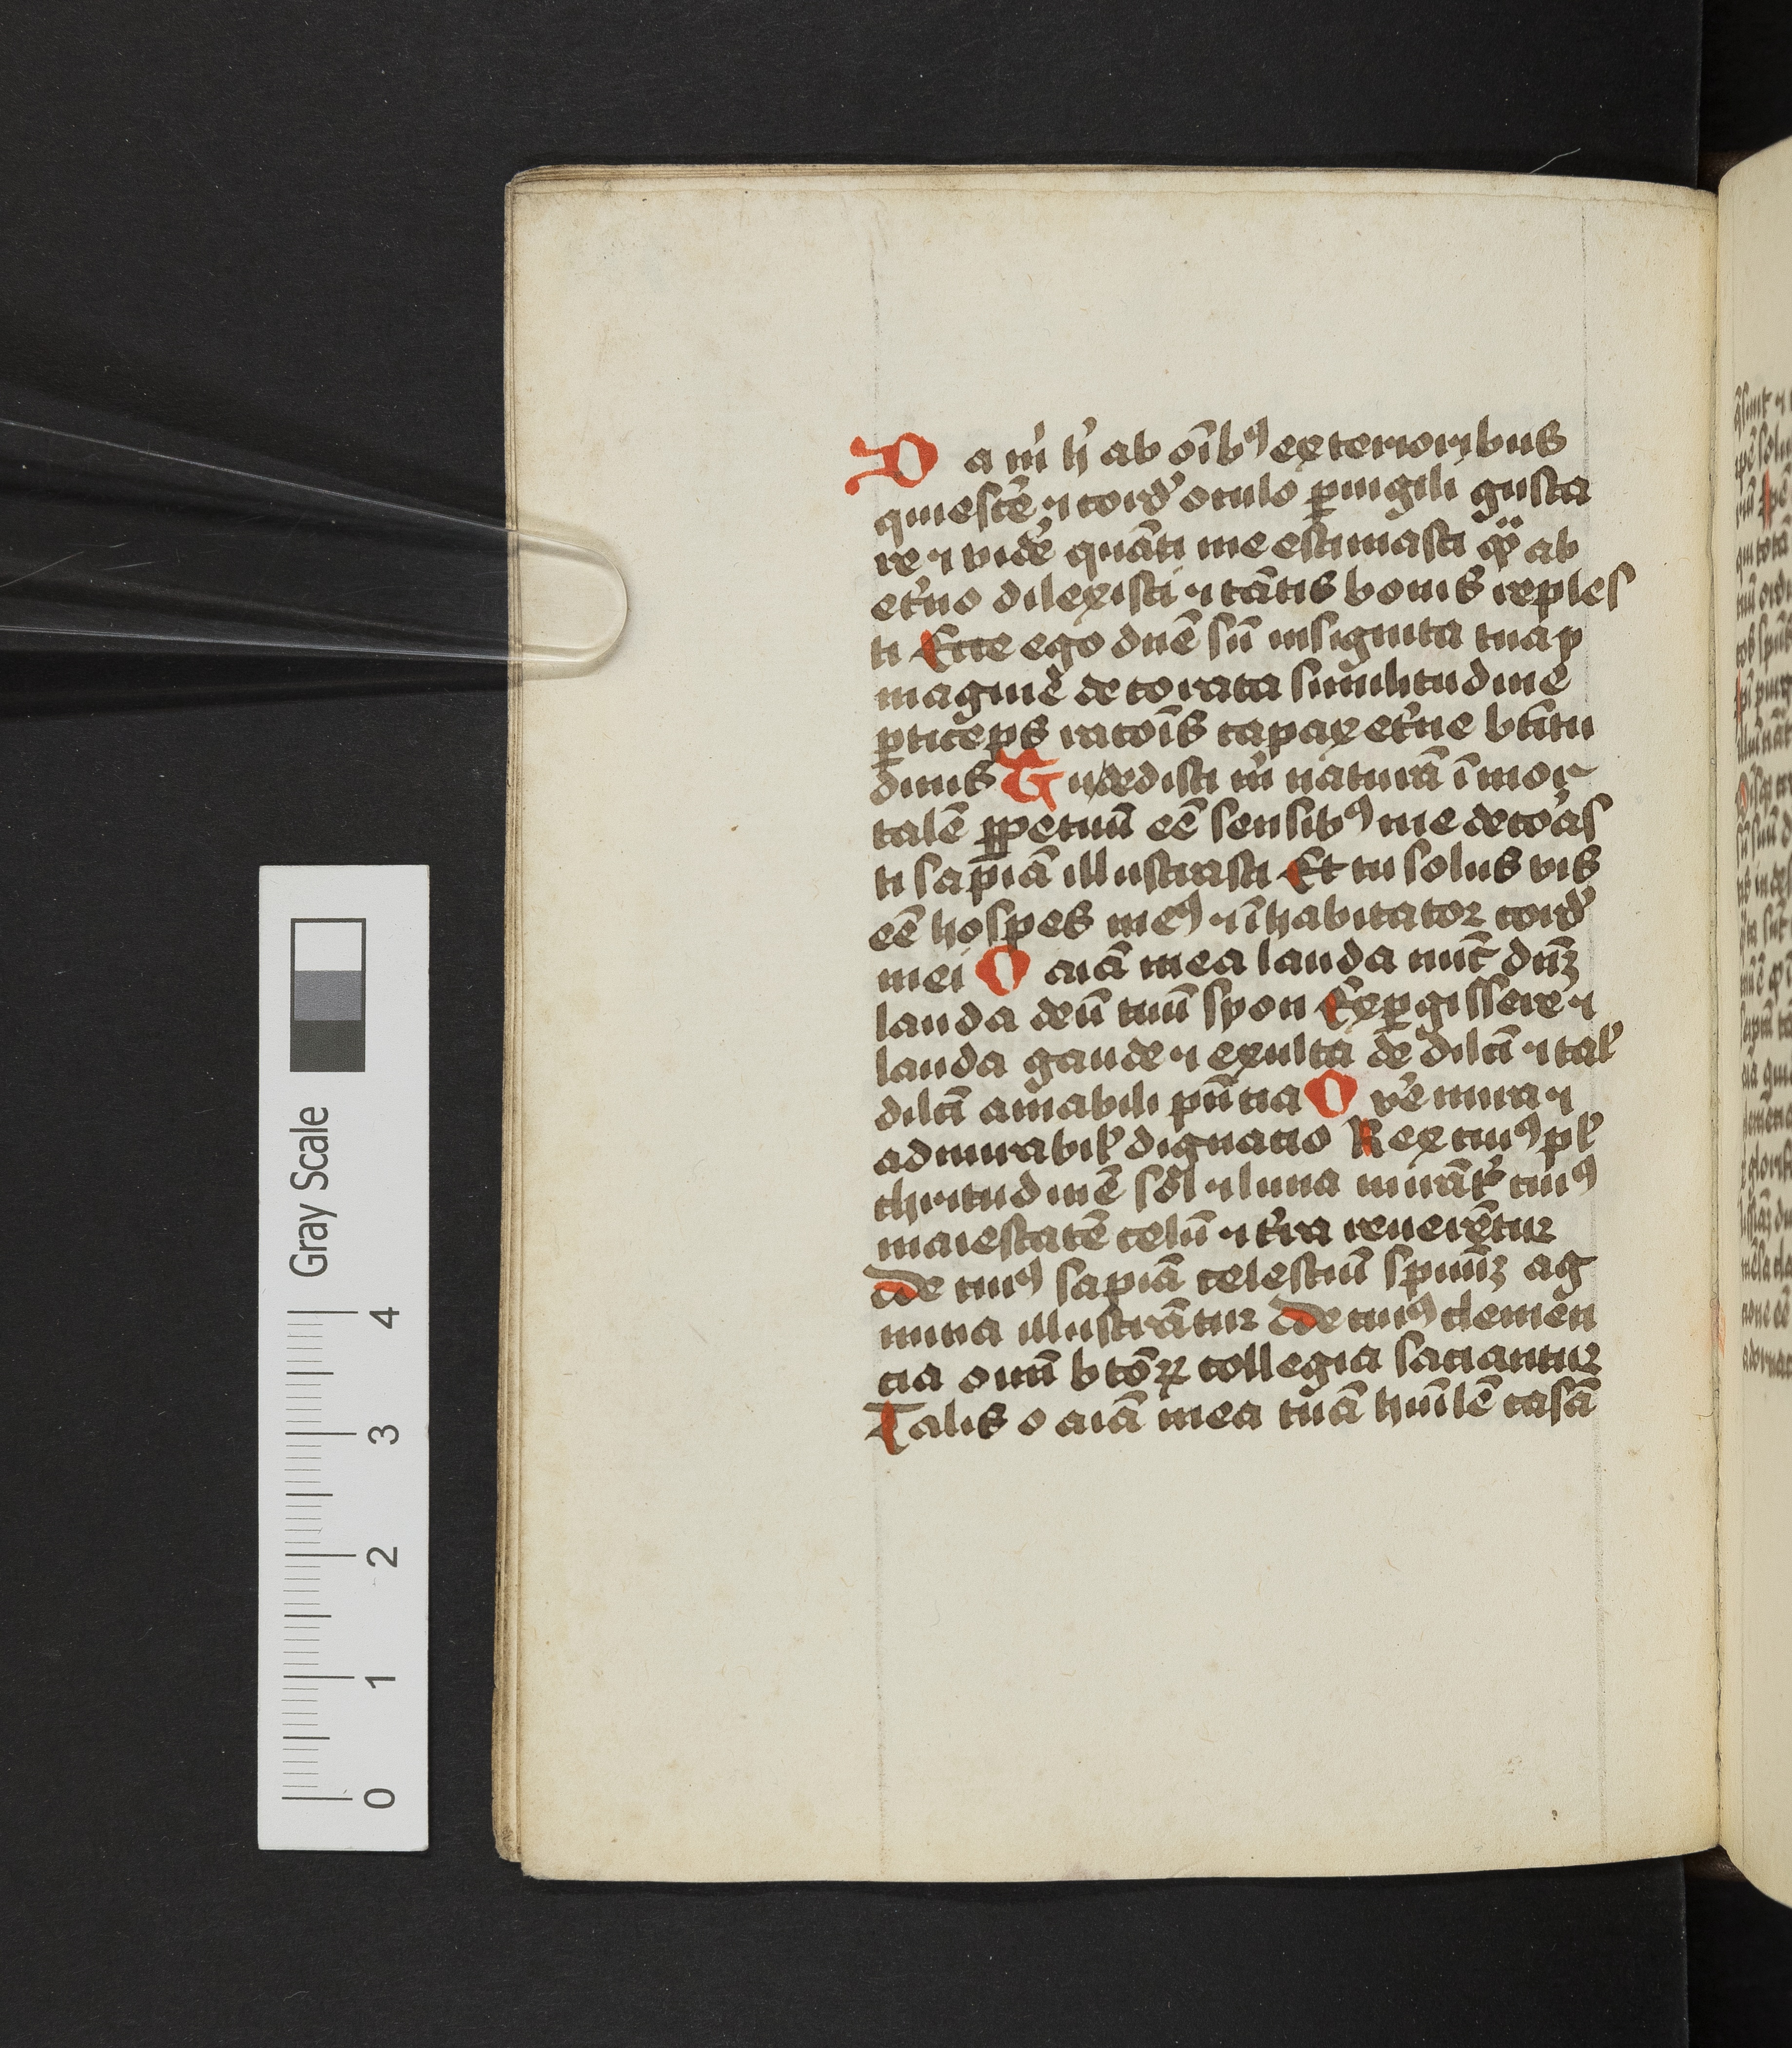 Da m̄ h̓ ab oīb⁹ exterioribus
quiescē ⁊ cord̓ oculo ꝑuigili gusta
re ⁊ videˀ quāti me estimasti ab
et̓no dilexisti ⁊ tātis bonis reples
ti Ecce ego dn̄e sū insignita tua ỹ
magine decorata similitudine
ꝑticeps racōis capax et̓ne bt̄itu
dinis Tu dedisti m̄ naturā īmor
talē ꝑpetuū eē sensib⁹ me decoras
ti sapiā illustrasti Et tu solus vis
eē hospes me⁹ ⁊ īhabitator cord̓
mei O aīa mea lauda nūc dn̄ꝫ
lauda deū tuū syon Exꝑgissere ⁊
lauda gaude ⁊ exulta de dilci ⁊ tal̓
dilci amabili pn̄tia O v̓e mira ⁊
admirabil̓ dignatio Rex cui⁹ pl̓
chritudinē sol ⁊ luna mirāt̓ cui⁹
maiestatē celū ⁊ t̓ra reuerētur
de cui⁹ sapiā celestiū spūuꝫ ag
mina illustrātur de cui⁹ clemēn
cia oīm btōꝝ collegia saciantur
Talis o aīa mea tuā hūilē casā
Gray Scale
4
3
2
1
0